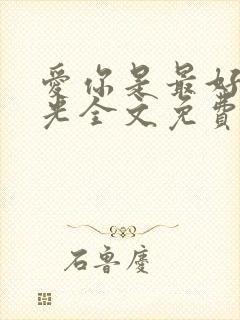 愛你是最好
光全文免費
石魯慶